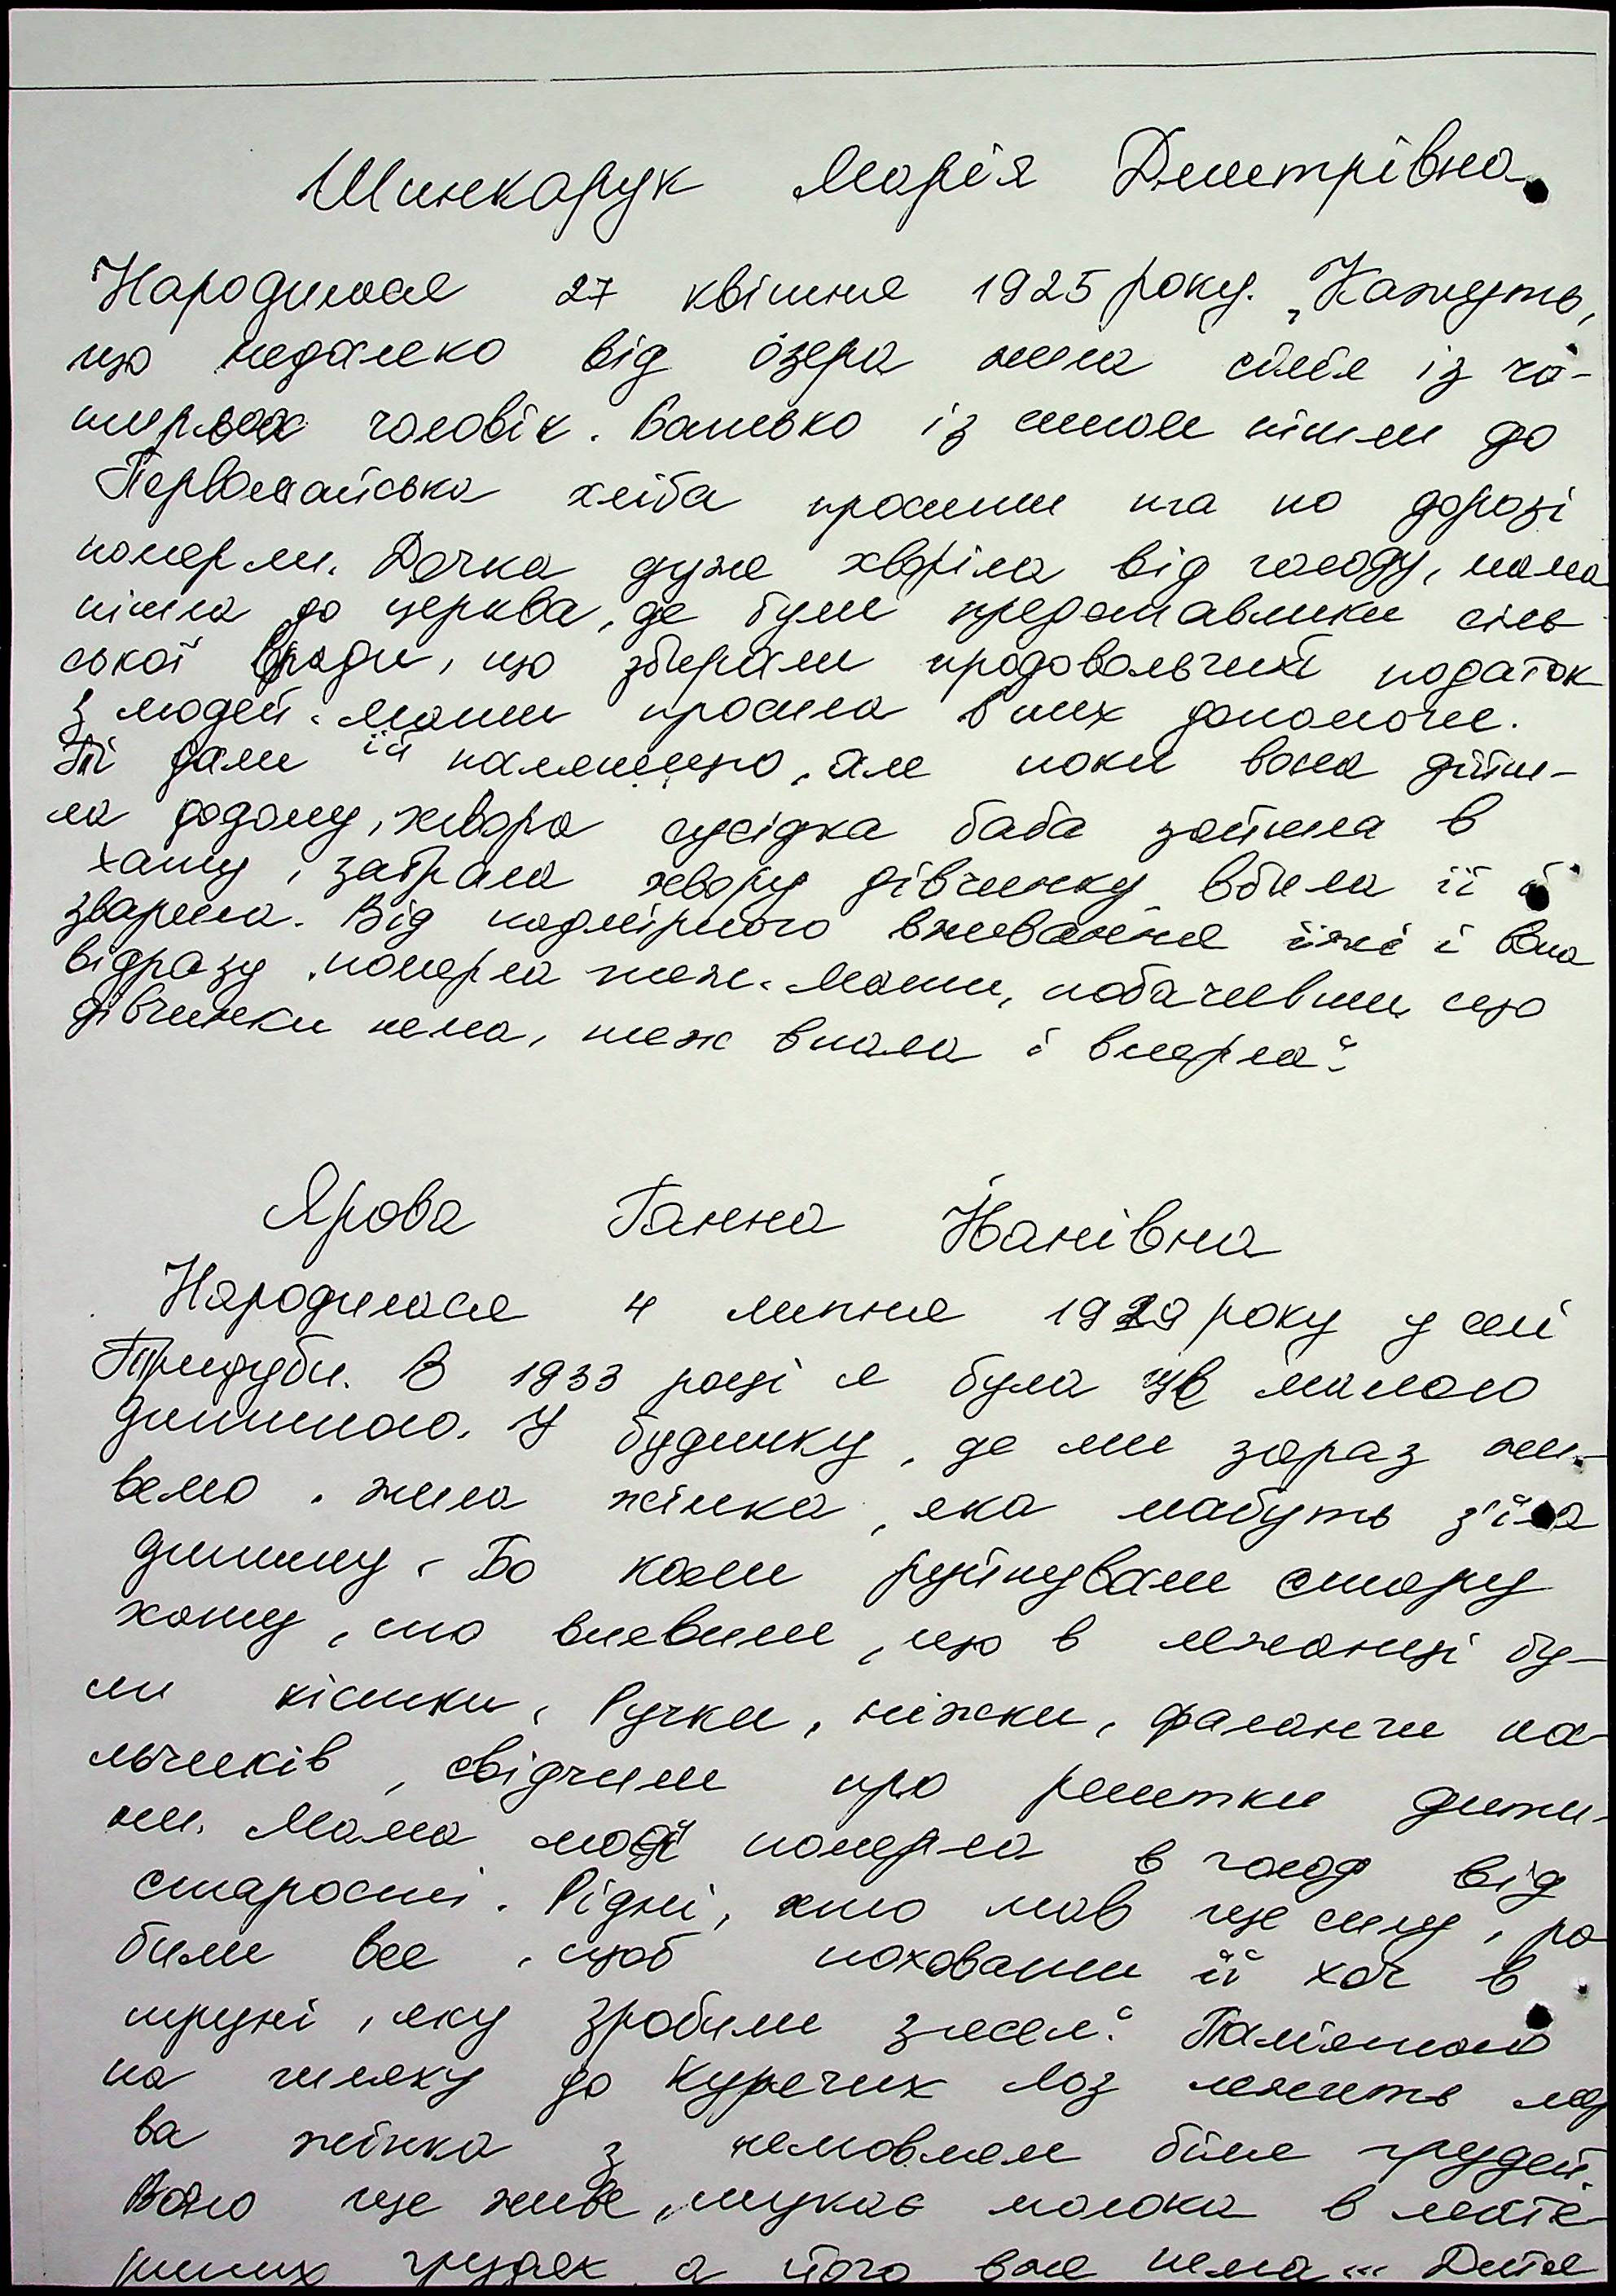 Шинкарук Марія Дмитрівна
Народилася 27 квітня 1925 року. „Кажуть,
що недалеко від озера жила сім'я із чо-
тирьох чоловік. Батько із сином пішли до
Первомайська хліба просити та по дорозі
померли. Дочка дуже хворіла від голоду, мама
пішла до церкви, де були представники сіль
ської влади, що збирали продовольчий податок
з людей. Мати просила в них допомоги.
Ті дали їй паляницю, але поки вона дійш-
ла додому, хвора сусідка баба зайшла в
хату, забрала хвору дівчинку вбила її і
зварила. Від надмірного вживання їжі і вона
відразу померла теж. Мати, побачивши що
дівчинки нема, теж впала і вмерла".
Ярова Ганна Іванівна
Народилася 4 липня 1929 року у селі
Тридуби. В 1933 році я була ще малою
дитиною. У будинку, де ми зараз жи-
вемо, жила жінка, яка мабуть з'їла
дитину. Бо коли руйнували стару
хату, то виявили, що в лежанці бу-
ли кістки. Ручки, ніжки, фаланги па-
льчиків, свідчили про рештки дити-
ни. Мама моєї померла в голод від
старості. Рідні, хто мав ще силу, ро
били все, щоб поховати її хоч в
труні, яку зробили з ясел". Пам'ятаю
на шляху до Курячих Лоз лежить мер
ва жінка з немовлям біля грудей.
Воно ще живе, шукає молока в мате-
риних грудях, а його вже нема... Дитя